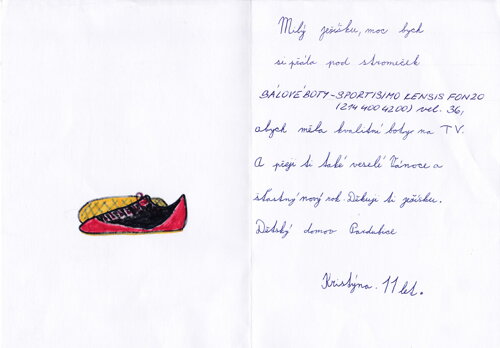 Milý ježíšku, moc bych
si přála pod stromeček
SÁLOVÉ BOTY - SPORTISIMO LENSIS FONZO
(214 400 4200) vel. 36,
abych měla kvalitní boty na TV.
A přeji ti také veselé Vánoce a
šťastný nový rok. Děkuji ti ježíšku.
Dětský domov Pardubice
Kristýna. 11 let.